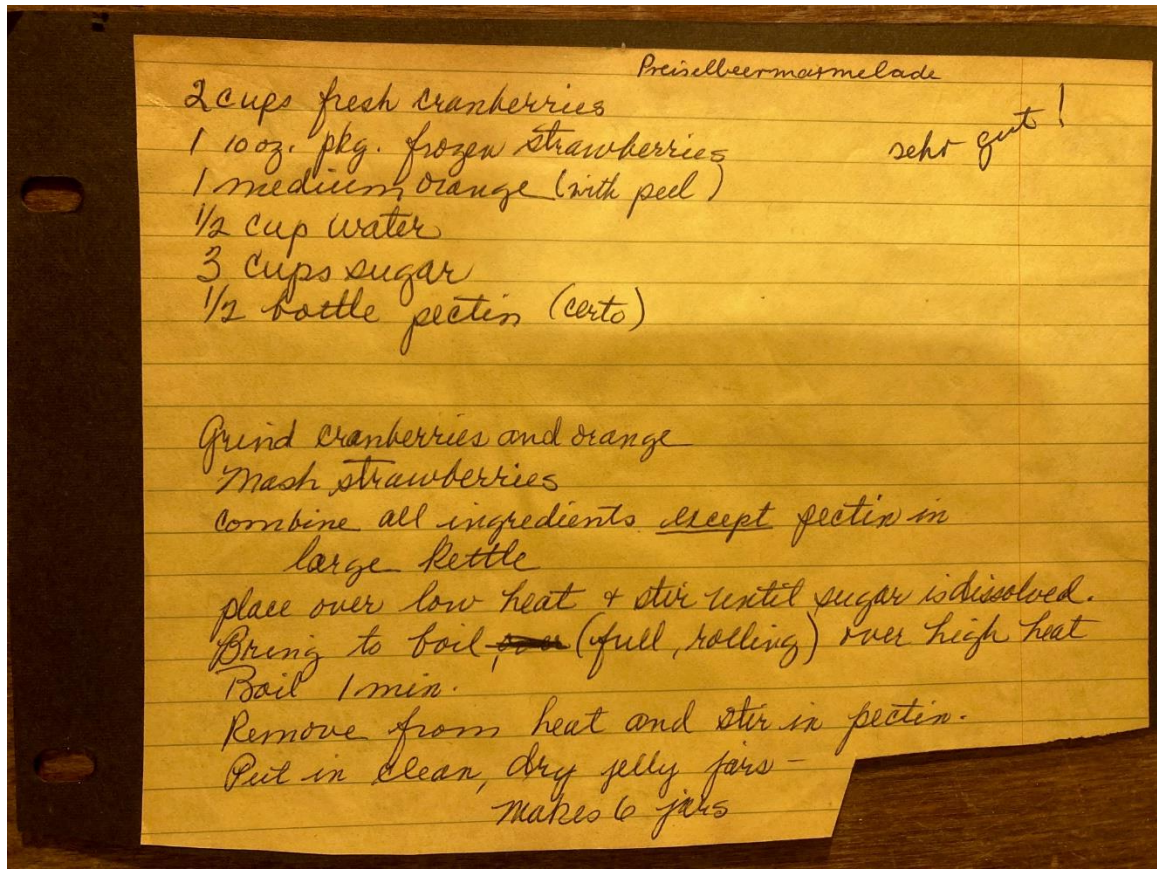 Preiselbeermarmelade
2 cups fresh cranberries
sehr gut!
1 10 oz. pkg. frozen strawberries
1 medium orange (with peel)
1/2 cup water
3 cups sugar
1/2 bottle pectin (certo)
Grind cranberries and orange
Mash strawberries
combine all ingredients except pectin in
large kettle
place over low heat + stir until sugar is dissolved.
Bring to boil, (full, rolling) over high heat
Boil 1 min.
Remove from heat and stir in pectin.
Put in clean, dry jelly jars -
makes 6 jars